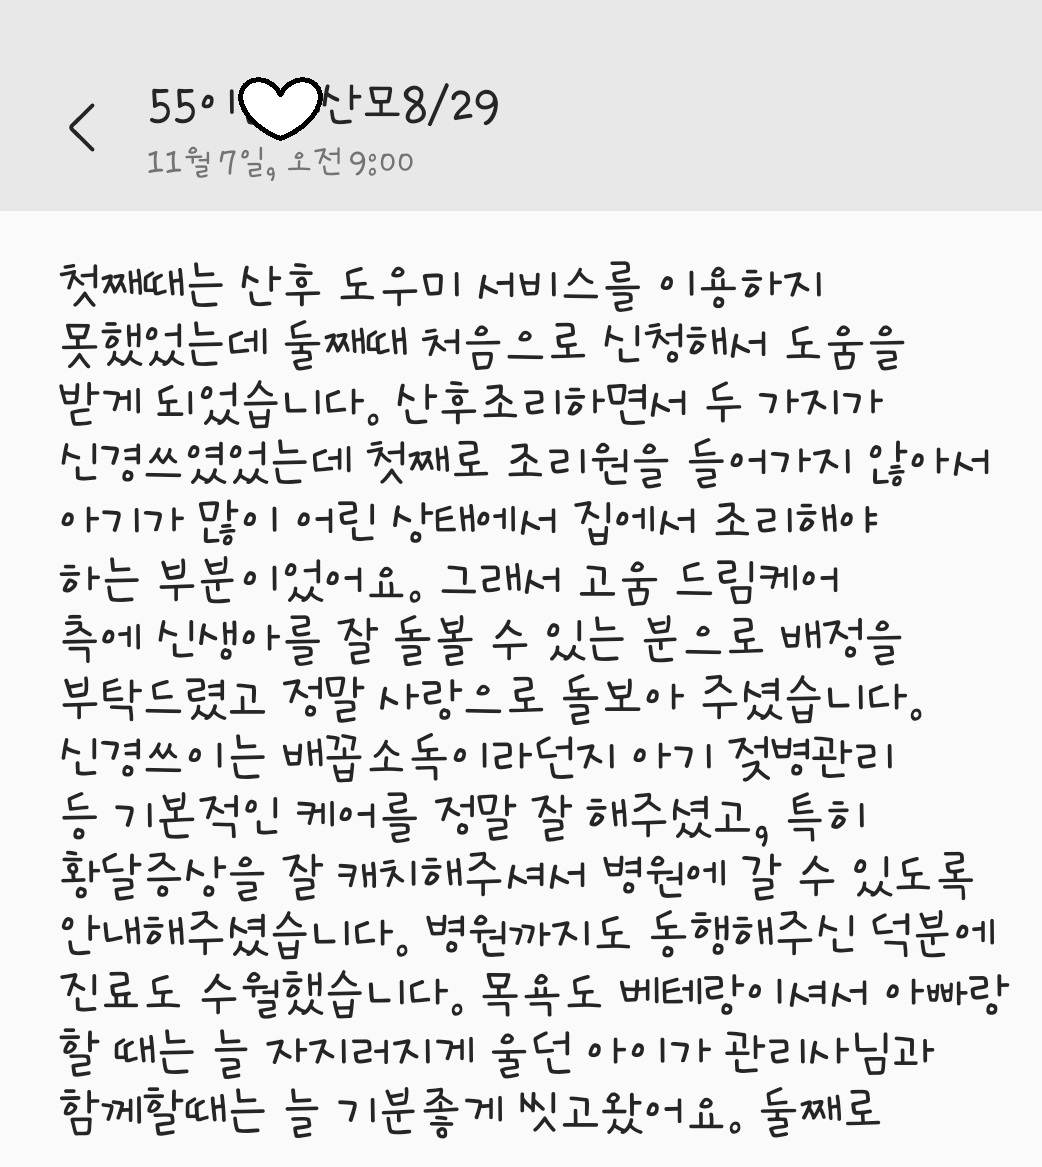 55이 산모8/29
11월 7일, 오전 9:00
첫째때는 산후 도우미 서비스를 이용하지
못했었는데 둘째때 처음으로 신청해서 도움을
받게 되었습니다. 산후조리하면서 두 가지가
신경쓰였었는데 첫째로 조리원을 들어가지 않아서
아기가 많이 어린 상태에서 집에서 조리해야
하는 부분이었어요. 그래서 고움 드림케어
측에 신생아를 잘 돌볼 수 있는 분으로 배정을
부탁드렸고 정말 사랑으로 돌보아 주셨습니다.
신경쓰이는 배꼽소독이라던지 아기 젖병관리
등 기본적인 케어를 정말 잘 해주셨고, 특히
황달증상을 잘 캐치해주셔서 병원에 갈 수 있도록
안내해주셨습니다. 병원까지도 동행해주신 덕분에
진료도 수월했습니다. 목욕도 베테랑이셔서 아빠랑
할 때는 늘 자지러지게 울던 아이가 관리사님과
함께할때는 늘 기분좋게 씻고왔어요. 둘째로